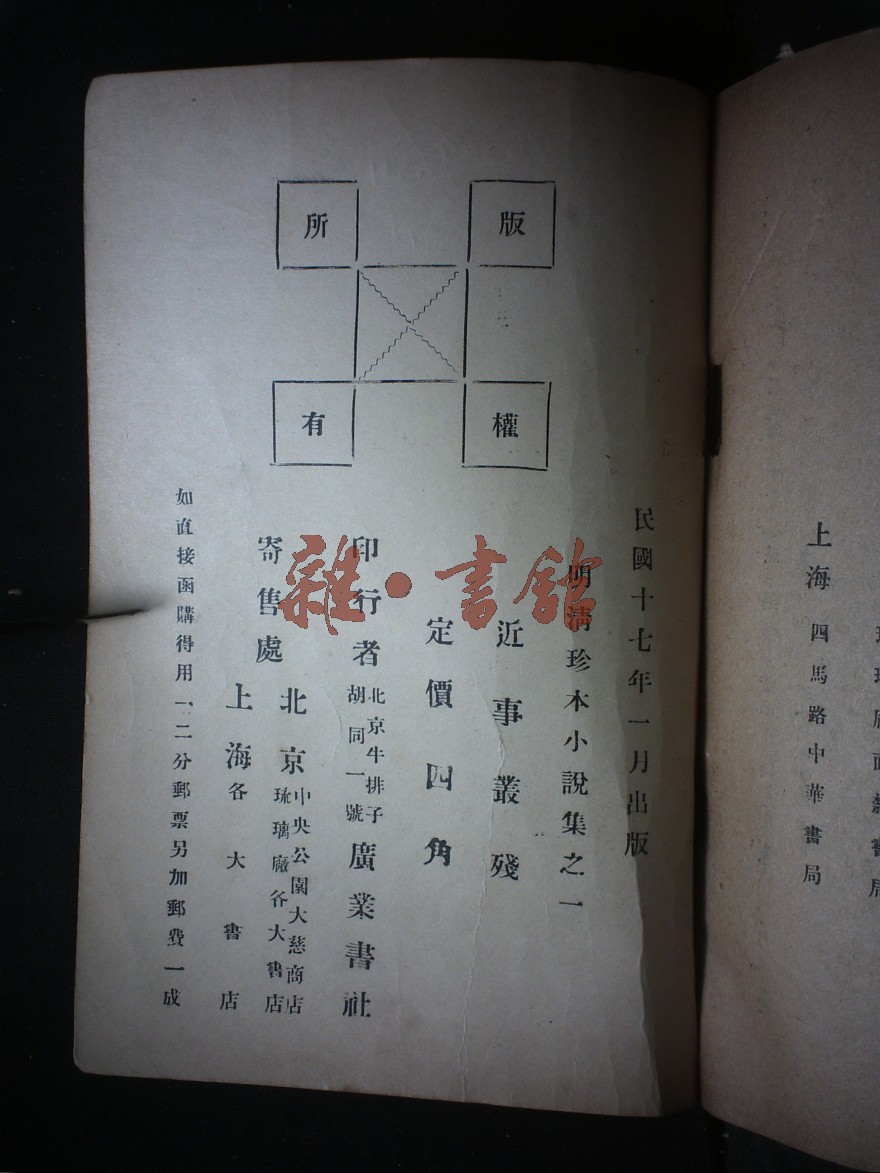 上海 四馬路中華書局
版權所有
民國十七年一月出版
明清珍本小說集之一
近事叢殘
定價四角
印行者 北京牛排子胡同一號 廣業書社
寄售處
北京 中央公園大慈商店 琉璃廠各大書店
上海 各大書店
如直接函購得用一、二分郵票另加郵費一成
雜·書館